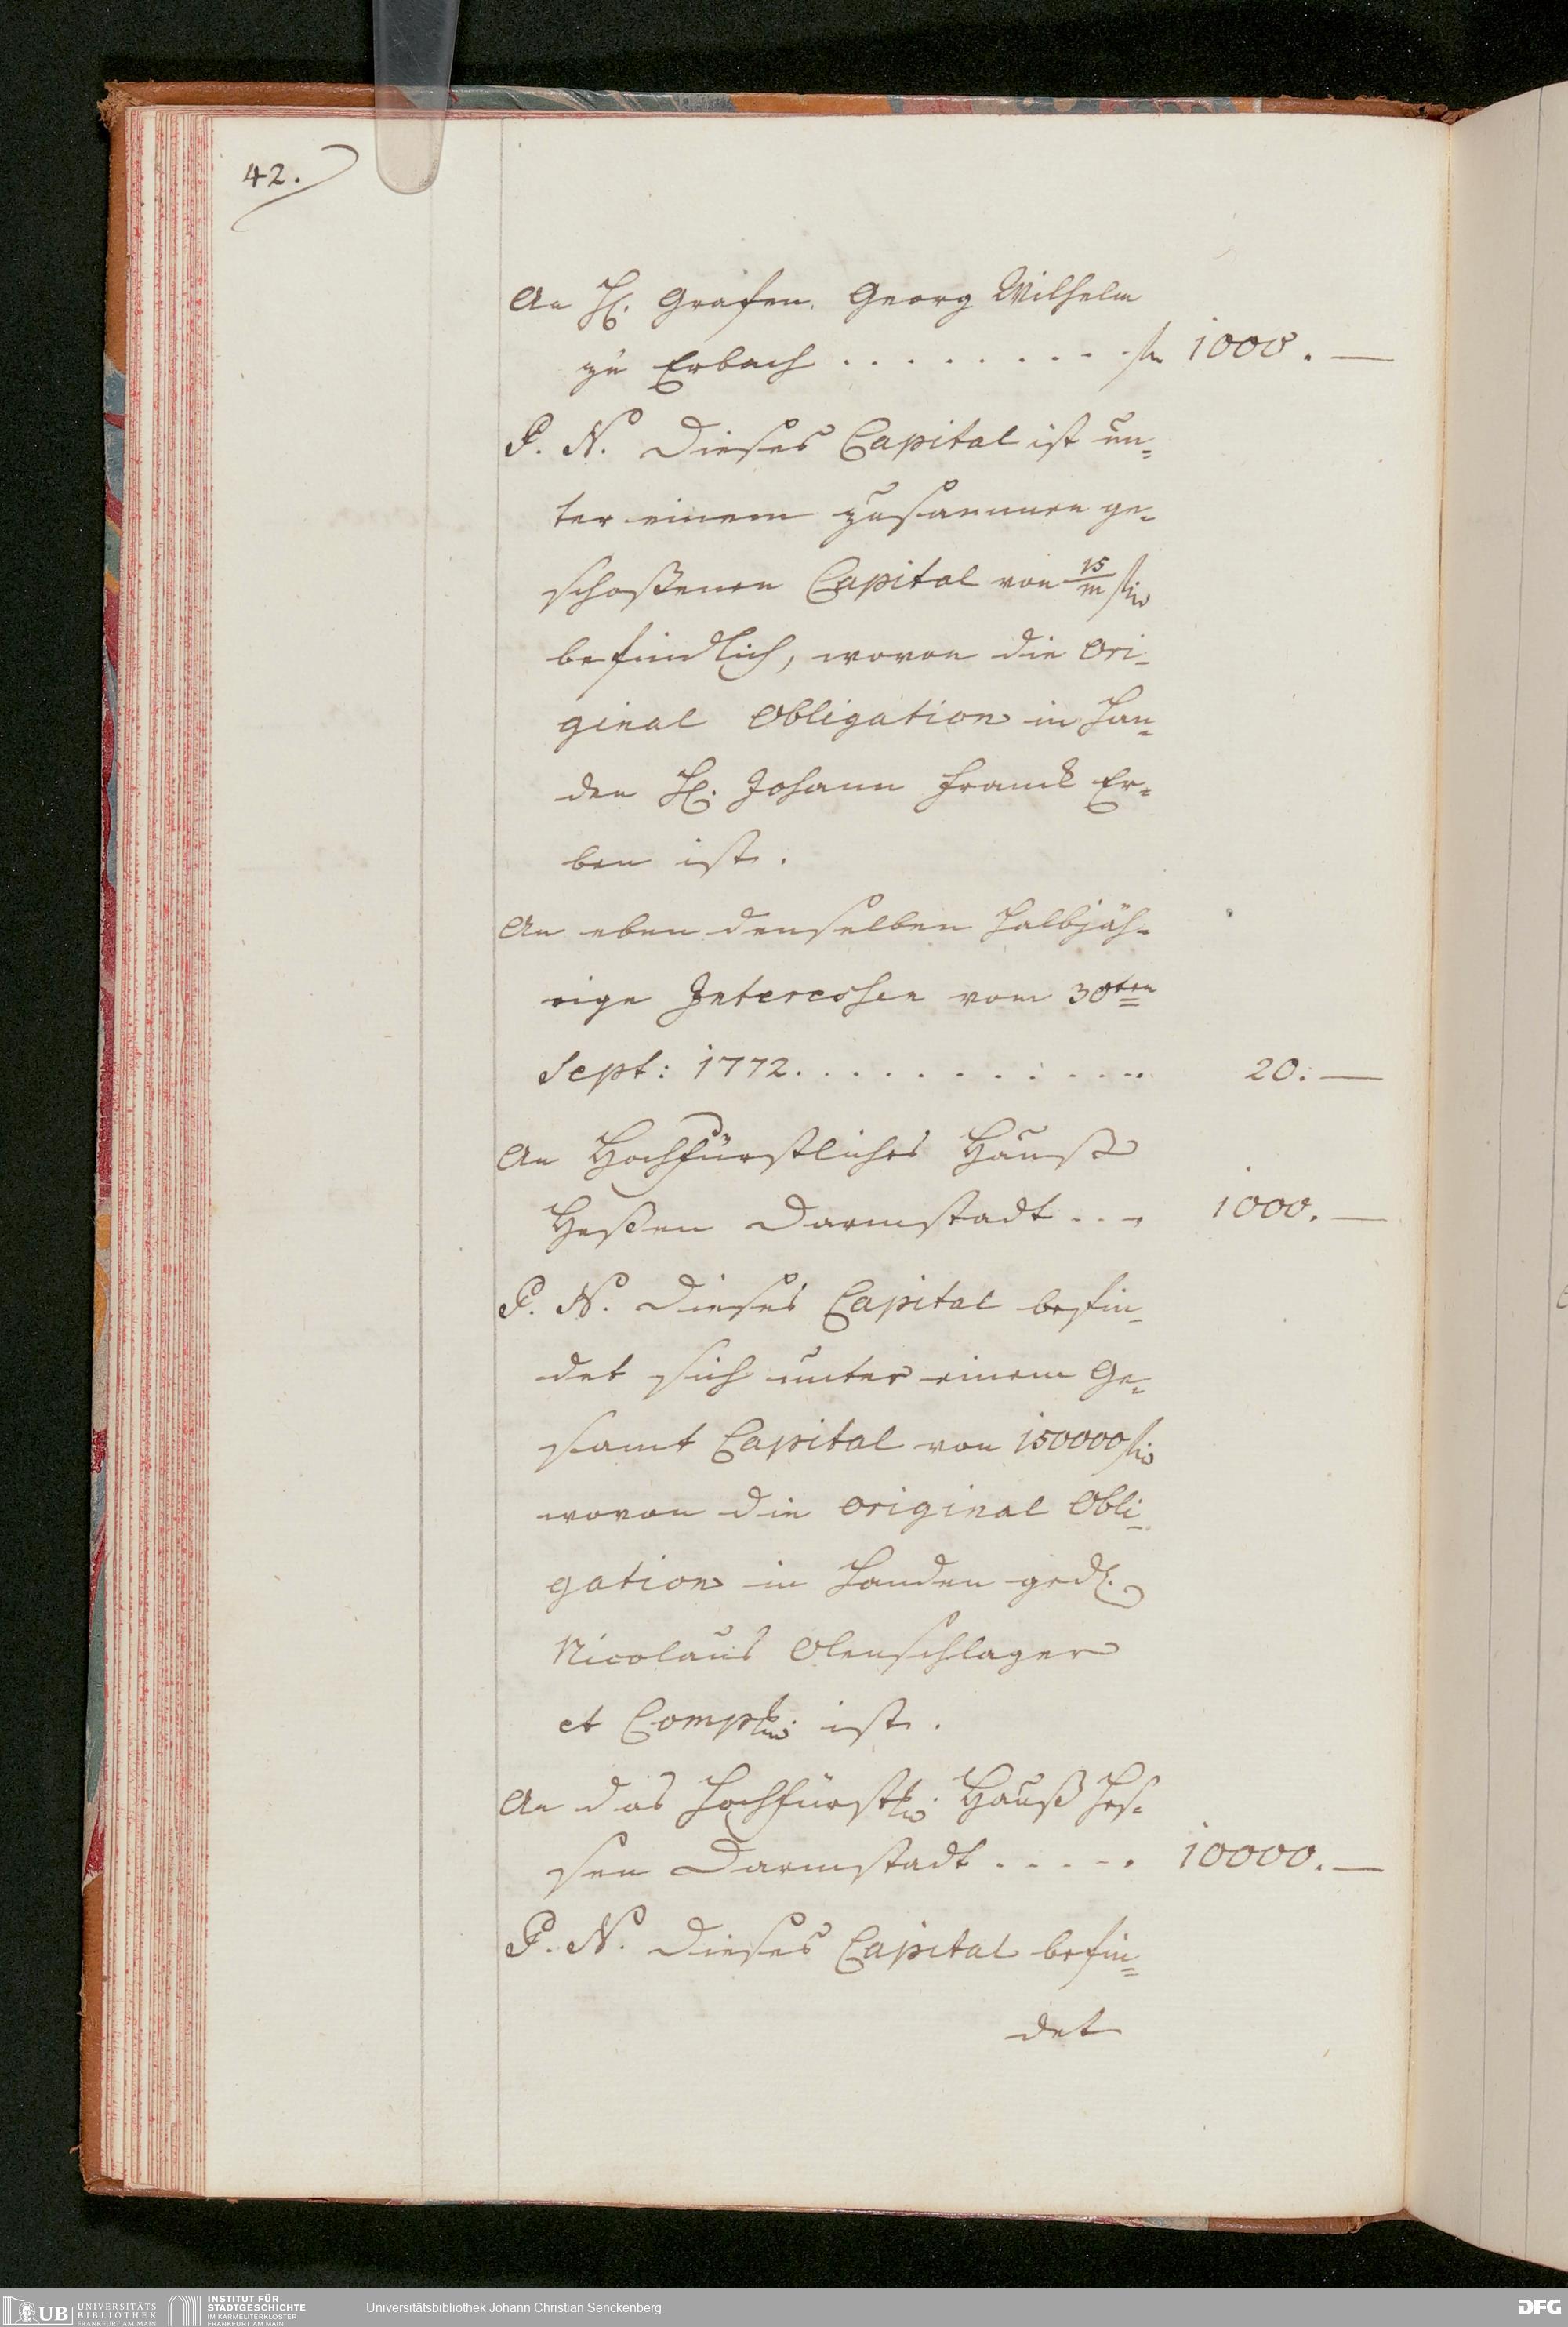 42.
An H. Grafen Georg Wilhelm
zu Erbach . . . . . . . . . fl. 1000. —
P. N. Dieses Capital ist un=
ter einem zusammen ge=
schoßenen Capital von 15/m fl.
befindlich, wovon die Ori=
ginal Obligation in Han=
den H. Johann Franck Er=
ben ist.
An eben denselben halbjäh=
rige Interessen vom 30ten
Sept: 1772. . . . . . . . . . . . 20. —
An Hochfürstliches Hauß
Heßen Darmstadt . . . 1000. —
P. N. Dieses Capital befin=
det sich unter einem Ge=
samt Capital von 150000 fl.
wovon die Original Obli=
gation in Handen
Nicolaus Olenschlager
et Comp. ist.
An das Hochfürstl. Hauß Hes=
sen Darmstadt . . . . . 10000. —
P. N. Dieses Capital befin=
det
UB UNIVERSITÄTS
BIBLIOTHEK
FRANKFURT AM MAIN
INSTITUT FÜR
STADTGESCHICHTE
IM KARMELITERKLOSTER
FRANKFURT AM MAIN
Universitätsbibliothek Johann Christian Senckenberg
DFG